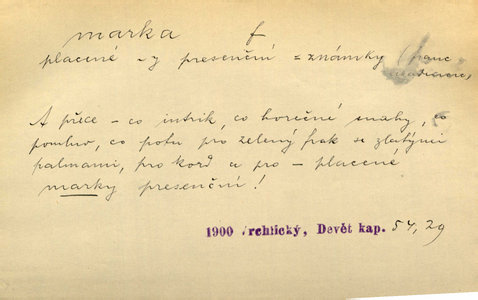 marka f
placené ~y presenční = známky (franc
A přece – co intrik, co horečné snahy, co
pomluv, co potu pro zelený frak se zlatými
palmami, pro kord a pro – placené
marky presenční!
1900 Vrchlický, Devět kap. 54, 29